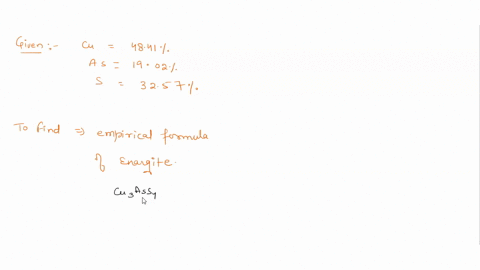 Given :- Cu = 48.41%
As = 19.02%
S = 32.57%
To find => empirical formula
of Enargite.
Cu3AsS4